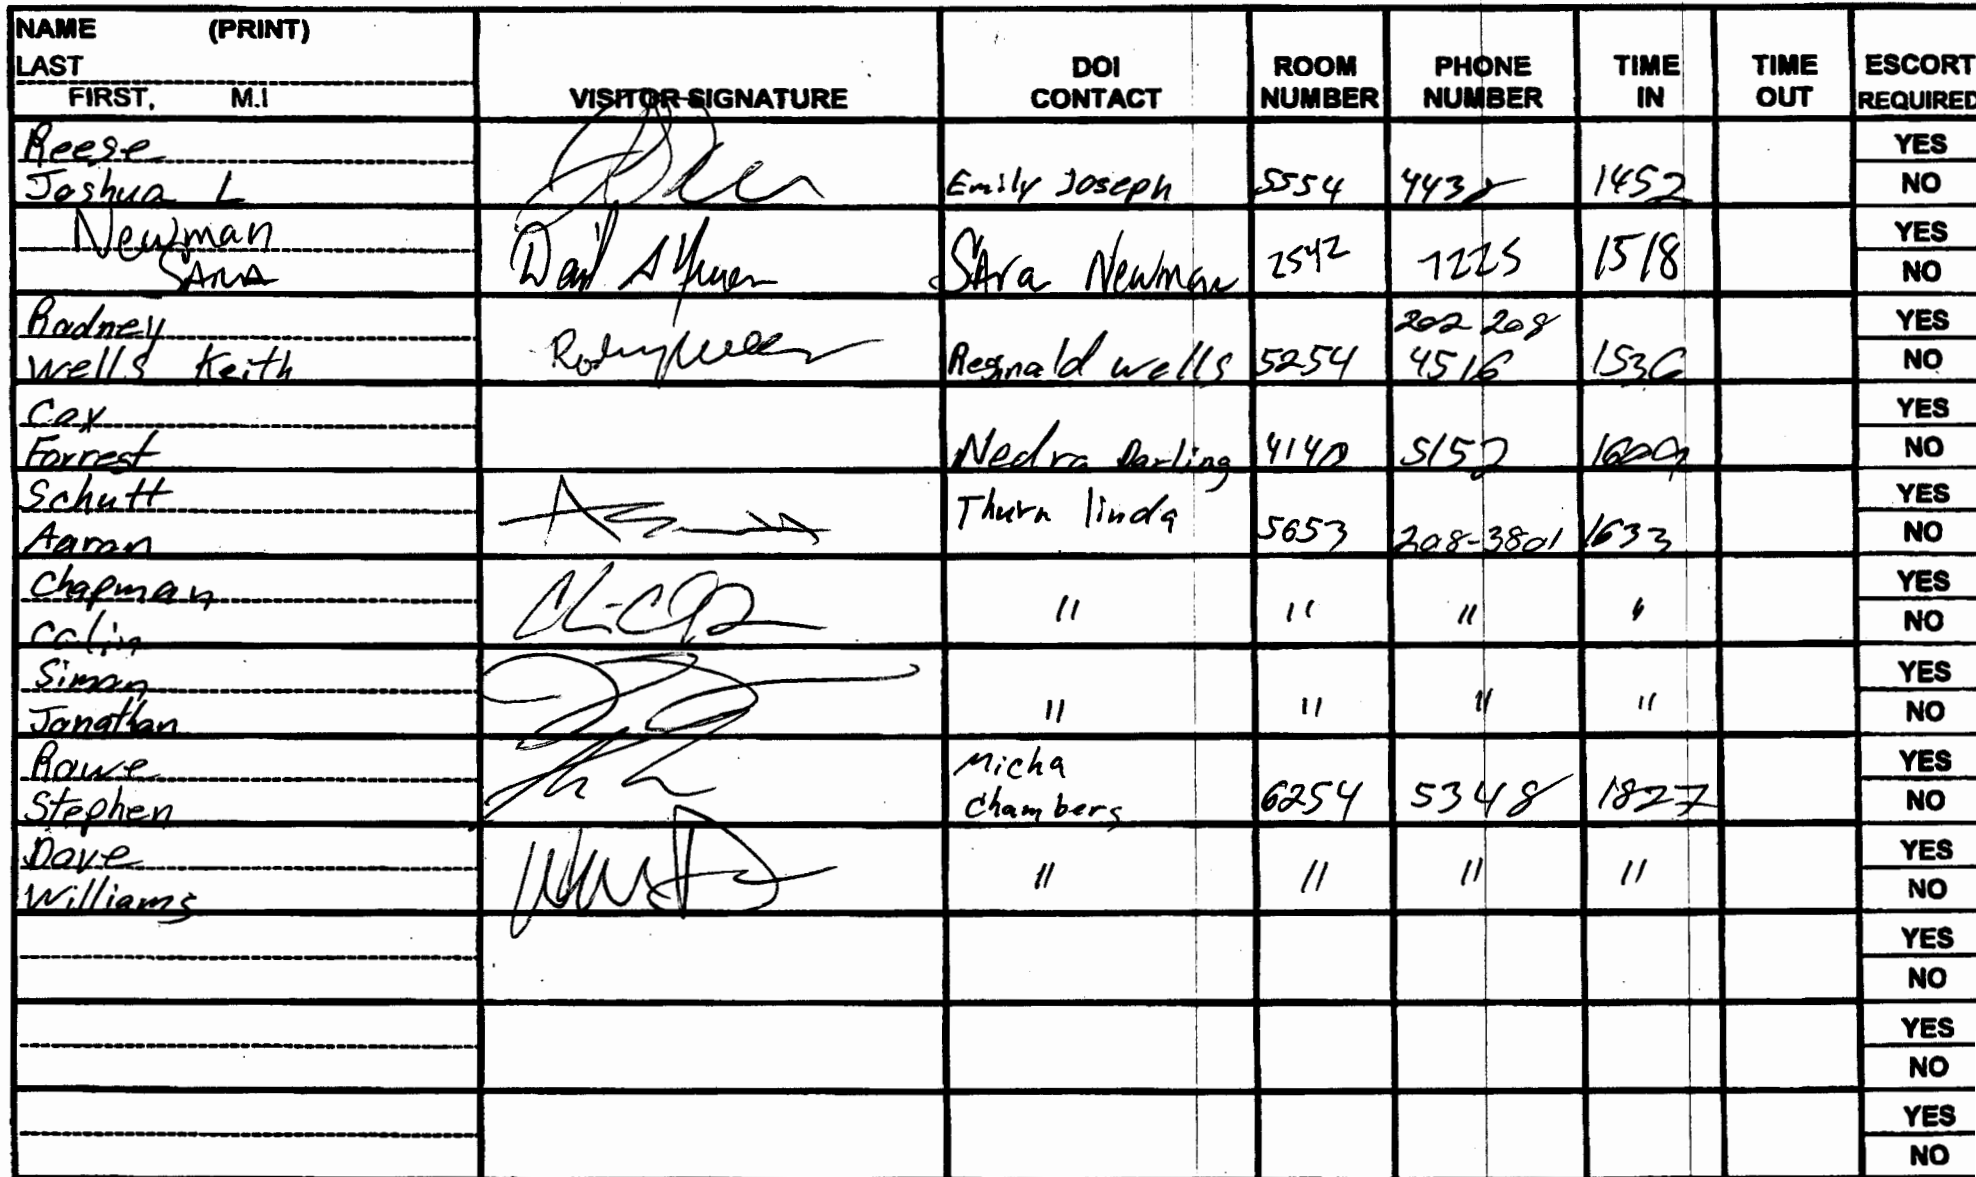 NAME (PRINT)
LAST
FIRST, M.I
VISITOR SIGNATURE
DOI CONTACT
ROOM NUMBER
PHONE NUMBER
TIME IN
TIME OUT
ESCORT REQUIRED
Reese
Joshua L Emily Joseph 5554 1452
YES
NO
Newman
SArA SAra Newman 2542 7225 1518
YES
NO
Rodney 202 208
Wells Keith Reginald Wells 5254 4516 1536
YES
NO
Cox
Forrest Nedra Darling 5152 1609
YES
NO
Schutt Thurn linda
Aaron 5653 208-3801 1633
YES
NO
Chapman
Colin " " " "
YES
NO
Simon
Jonathan " " " "
YES
NO
Rowe Micha
Stephen Chambers 6254 5348 1827
YES
NO
Dave
Williams " " " "
YES
NO
YES
NO
YES
NO
YES
NO